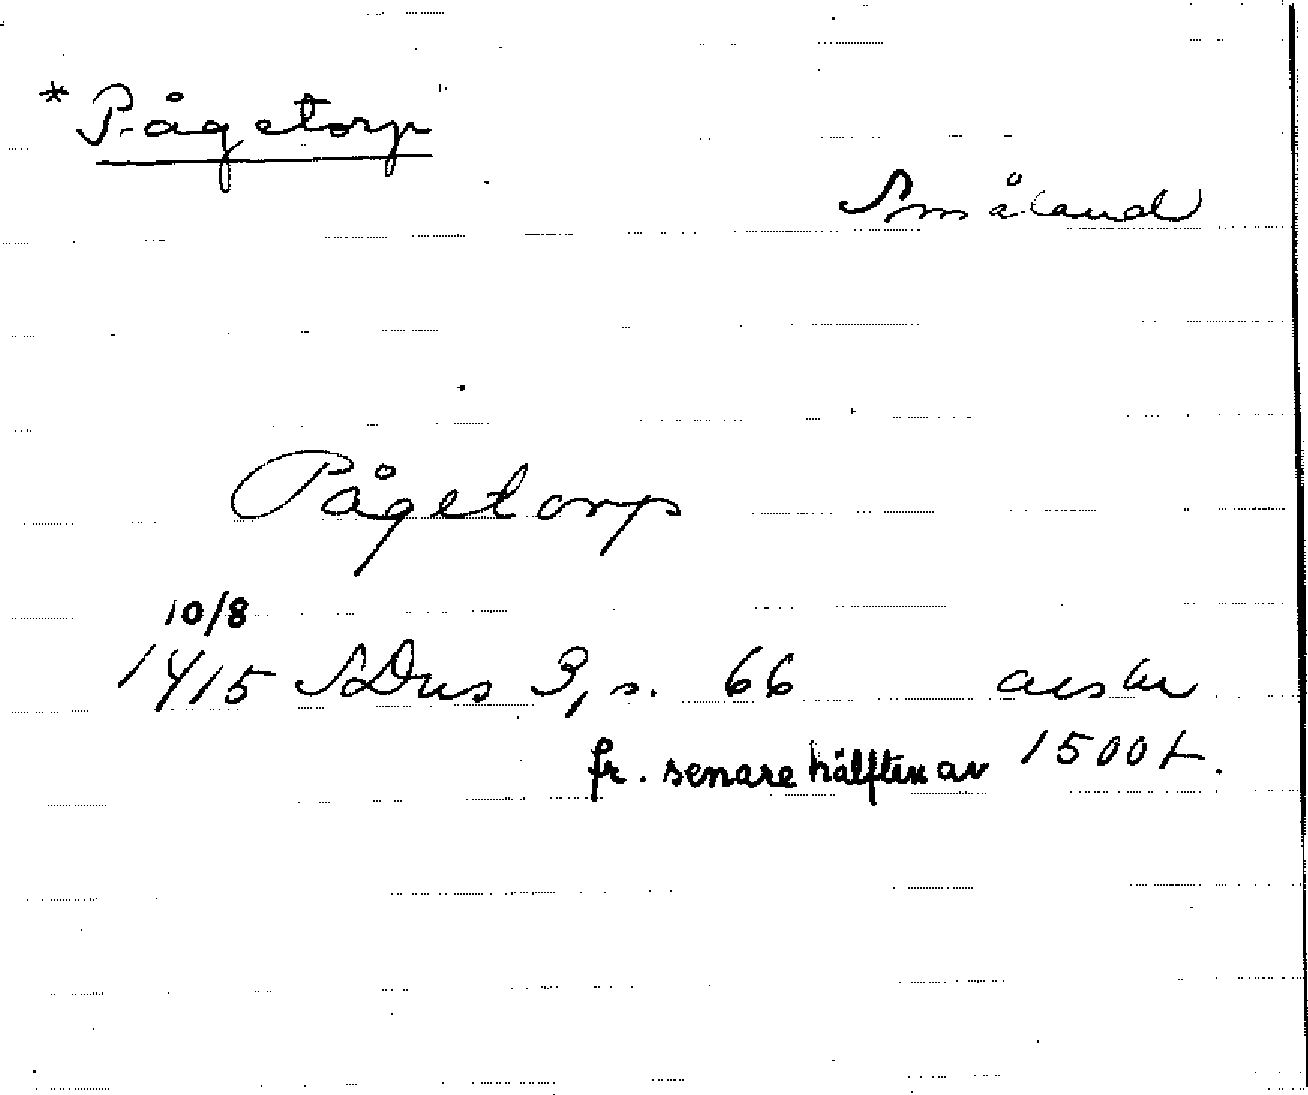 * Pågetorp
Småland
Pågetorp
10/8
1415 SDns 3, s. 66 avskr
fr. senare hälften av 1500t.